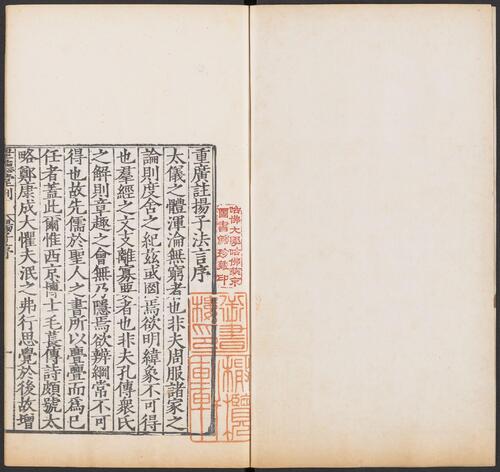 哈佛大學哈佛燕京
圖書館珍藏印
重廣註揚子法言序
太儀之體渾淪無窮者也非夫周服諸家之
論則度舍之紀茲或罔焉欲明緯象不可得
也羣經之文支離寡要者也非夫孔傳衆氏
之解則章趣之會無乃隱焉欲辨綱常不可
得也故先儒於聖人之書所以亹亹而爲已
任者蓋此爾惟西京博士毛萇傳詩頗號太
略鄭康成大懼夫泯之弗行思覺於後故增